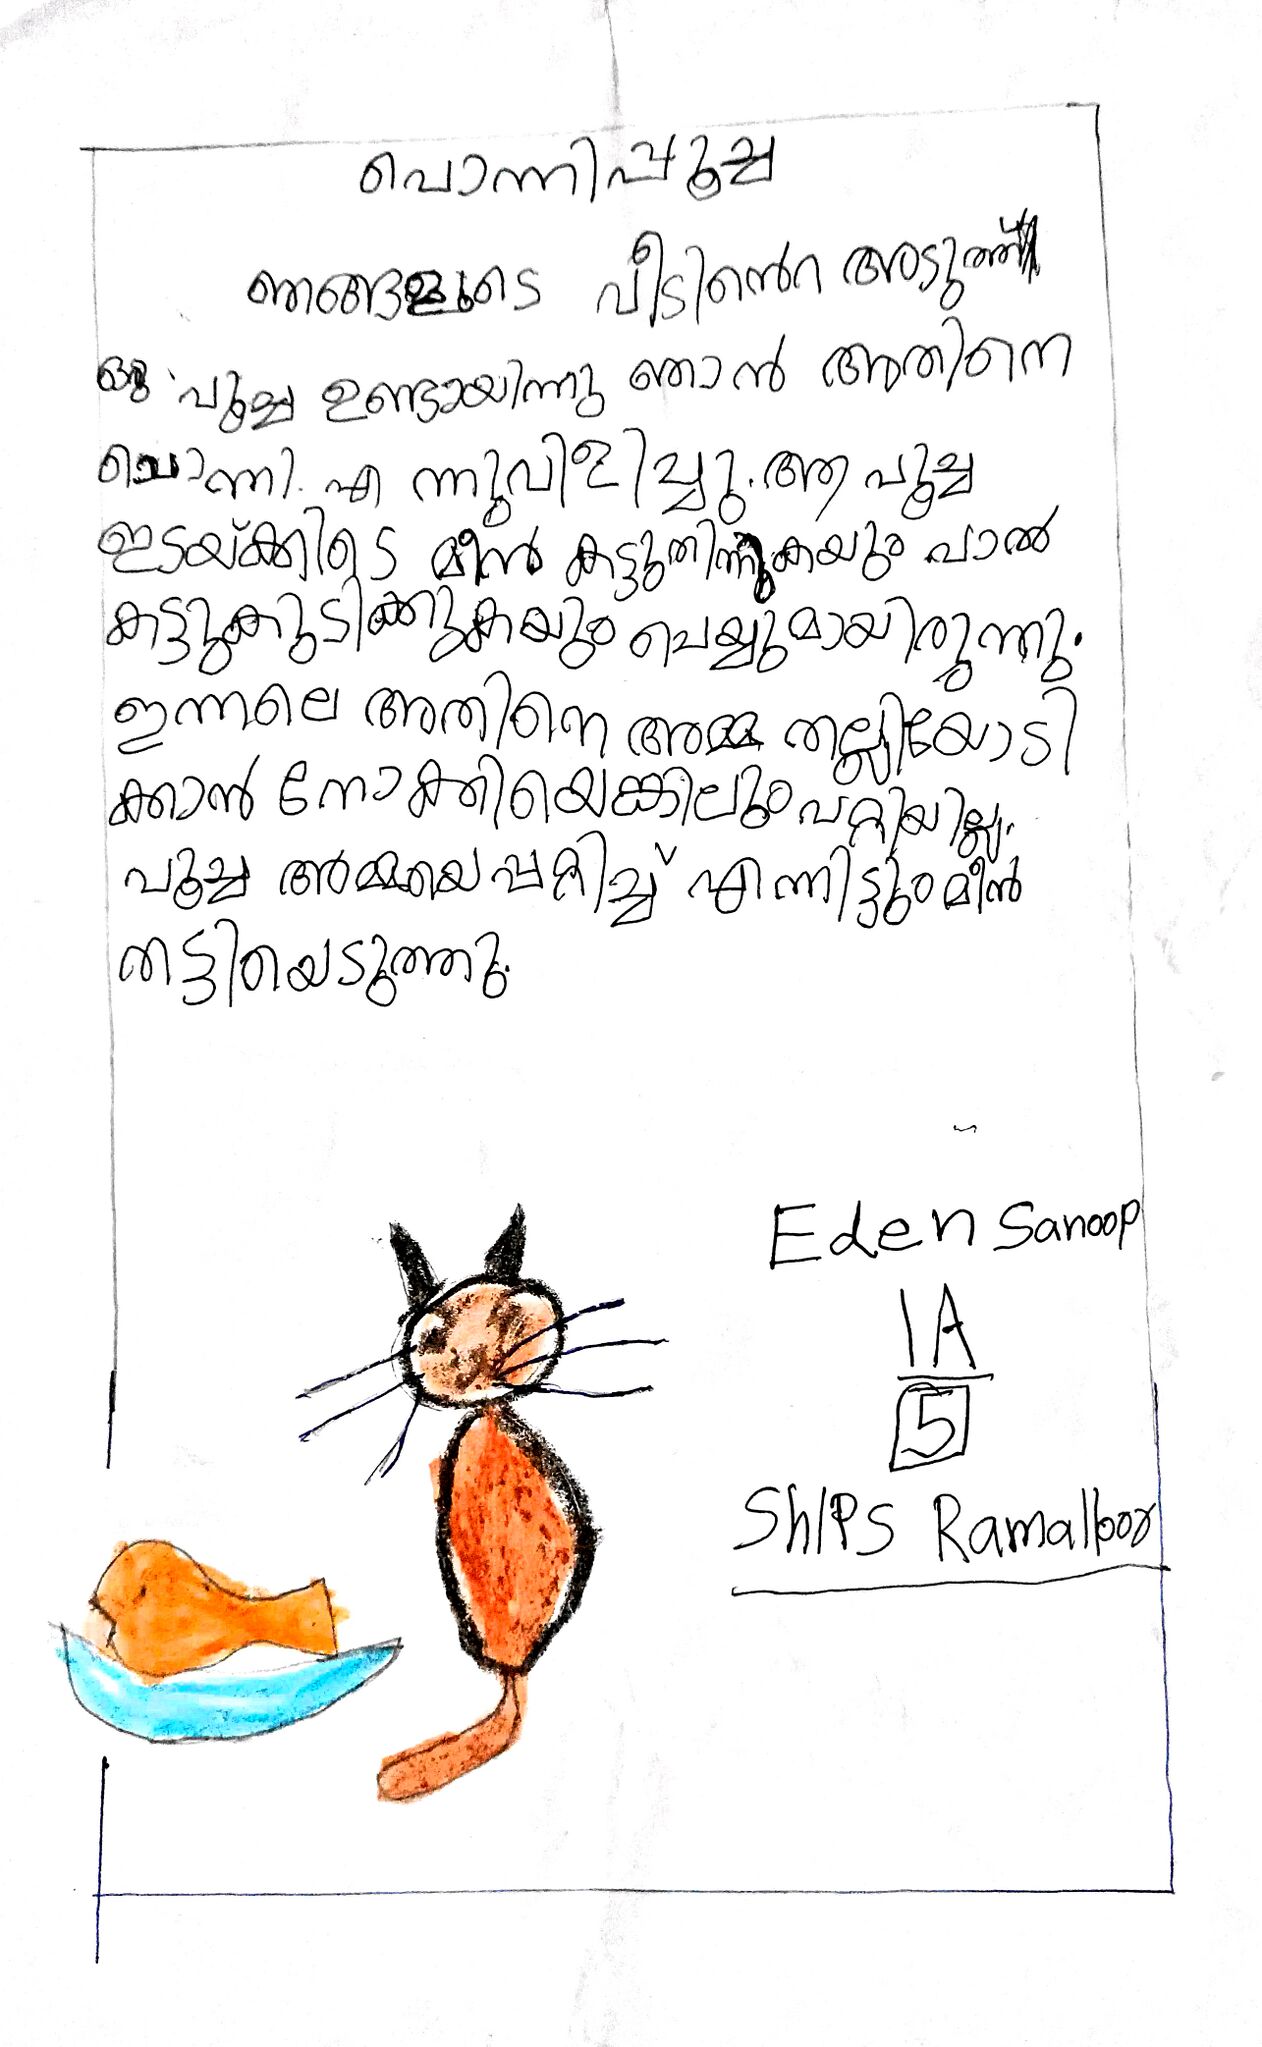 പൊന്നിപ്പൂച്ച
ഞങ്ങളുടെ വീടിൻെറ അടുത്ത്
ഒരു പൂച്ച ഉണ്ടായിന്നു ഞാൻ അതിനെ
പൊന്നി എ ന്നുവിളിച്ചു. ആ പൂച്ച
ഇടയ്ക്കിടെ മീൻ കട്ടുതിന്നുകയും പാൽ
കട്ടുകുടിക്കുകയും ചെയ്യുമായിരുന്നു.
ഇന്നലെ അതിനെ അമ്മ തല്ലിയോടി
ക്കാൻ നോക്കിയെങ്കിലും പറ്റിയില്ല.
പൂച്ച അമ്മയെപ്പറ്റിച്ച് എന്നിട്ടും മീൻ
തട്ടിയെടുത്തു.
Eden Sanoop
1A
5